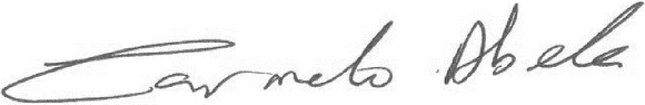 Carmelo Abela